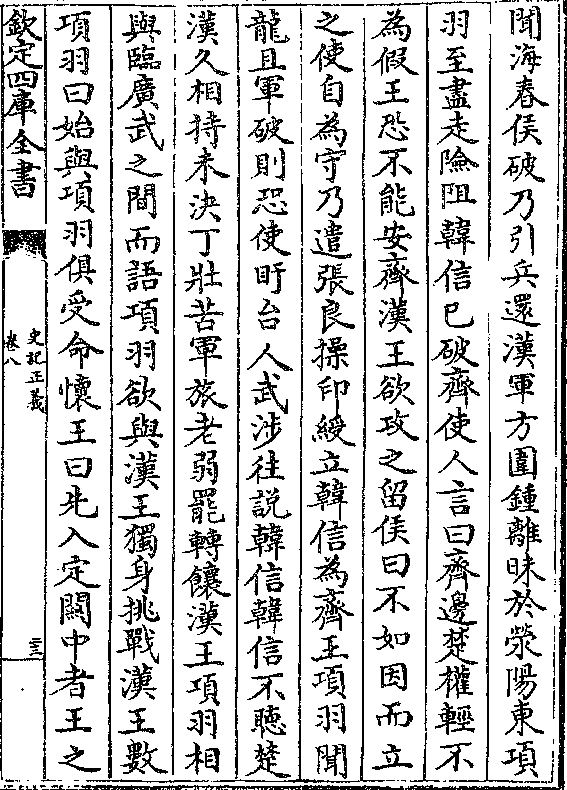 聞海春侯破乃引兵還漢軍方圍鍾離昧於滎陽東項
羽至盡走險阻韓信已破齊使人言曰齊邊楚權輕不
為假王恐不能安齊漢王欲攻之留侯曰不如因而立
之使自為守乃遣張良操印綬立韓信為齊王項羽聞
龍且軍破則恐使盱台人武涉往說韓信韓信不聽楚
漢久相持未決丁壯苦軍旅老弱罷轉饟漢王項羽相
與臨廣武之間而語項羽欲與漢王獨身挑戰漢王數
項羽曰始與項羽俱受命懷王曰先入定關中者王之
欽定四庫全書
史記正義
卷八
三三